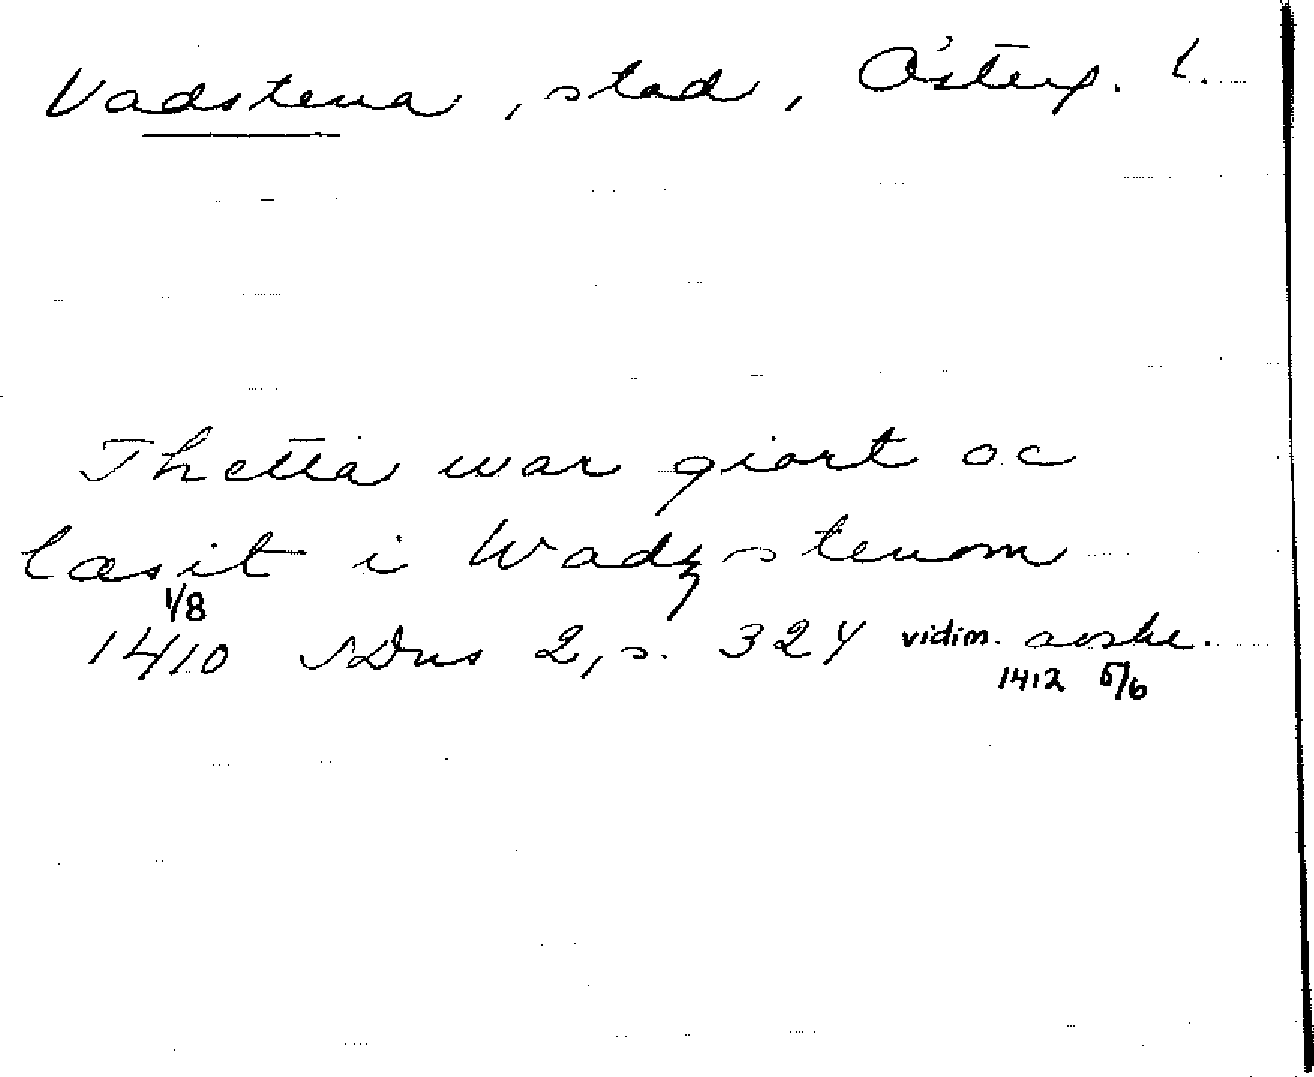 Vadstena, stad, Österg. l.
Thetta war giort oc
læsit i Wadzstenom
1/8
1410 SDns 2, s. 324 vidim. avskr.
1412 5/6